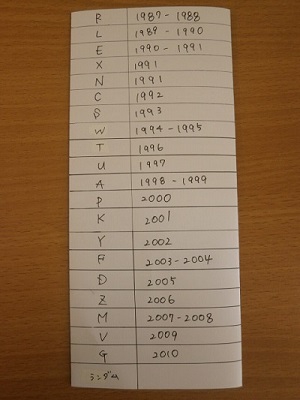 R 1987 - 1988
L 1989 - 1990
E 1990 - 1991
X 1991
N 1991
C 1992
S 1993
W 1994 - 1995
T 1996
U 1997
A 1998 - 1999
P 2000
K 2001
Y 2002
F 2003 - 2004
D 2005
Z 2006
M 2007 - 2008
V 2009
G 2010
ランダム